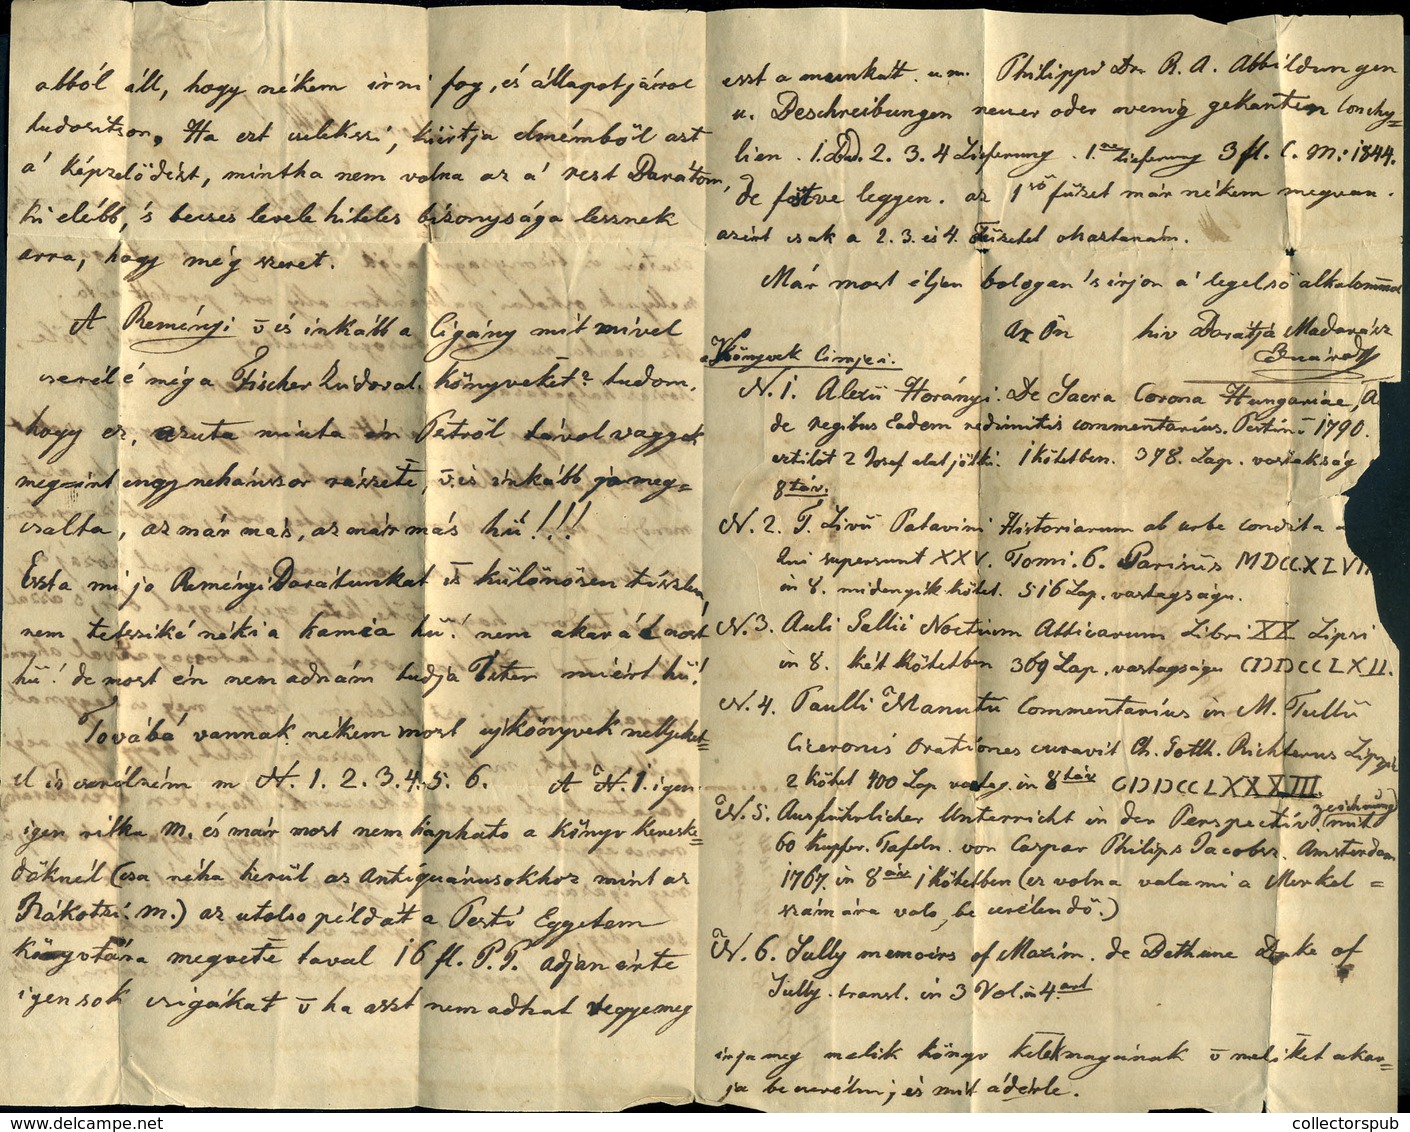 abból áll, hogy nékem irni fog, és állapotjárrol
tudositson. Ha ezt cselekszi, kiirtja elmémből azt
á képzelődést, mintha nem volna az á rest Barátom,
ki előbb, 's becses levele hiteles bizonysága lessnek
arra, hogy még szeret.
A Reményi v és inkább a Cigány mit mivel
cserél é még a Fischer Lúdoval könyveket? tudom,
hogy ez, azuta miuta én Petről távol vagyok
megint engy nehánszor rászete, v. és inkább jameg=
csalta, az már más, az már más hü!!!
Eszta mi jo Reményi Barátunkat is különösen tisztelem,
nem tetsziké néki a kamea hü! nem akará most
hü! de most én nem adnám tudja Péter miért hü!
Továbá vannak nékem most ujkönyvek mellyeket=
el is cserélném m N. 1. 2. 3. 4. 5. 6. A N. 1. igen
igen ritka M. és már most nem kapható a könyv kereske=
dőknél (csa néha kerül az Antiquárusokhoz mint az
Rákotzi. M.) az utolso példát a Pesti Eggetem
könyvtára megvette taval 16 fl. P. P. Adjan érte
igen sok csigákat v ha aszt nem adhat vegye meg
eszt a munkátt. u.m. Philippi Dr. R. A. Abbildungen
u. Beschreibungen neuer oder wenig gekanten Conchy=
lien. 1. Bd. 2. 3. 4 Lieferung. 1. Lieferung 3 fl. C. M: 1844.
de föstve legyen. az 1ső füzet már nékem megvan.
azért csak a 2. 3. és 4. Füzetet ohaztanám.
Már most éljen bologan 's irjon á legelső alkalommal
Az Ön hiv Barátjá Madarász
Eduárd
a Könyvek Cimjei.
N. 1. Alexii Horányi. De Sacra Corona Hungariae, A
de regibus Eadem redimitis commentarius. Pestini 1790.
eztilöt 2 Josef alat jötki. 1 kötetben. 378. Lap. vastakság
8táv.
N. 2. T. Livii Patavini Historiarum ab urbe condita
qui supersunt XXV. Tomi. 6. Parisiis MDCCXLVII
in 8. midengyik kötet. 516 Lap. vastagságu.
N. 3. Auli Gellii Noctium Atticarum Libri XX Lipsi
in 8. két kötetben 369 Lap. vastagságu CIƆIƆCCLXII.
N. 4. Paulli Manutii Commentarius in M. Tullii
Ciceronis Orationes curavit Ch. Gotth. Richterus Lipzi
2 kötet 400 Lap vastag. in 8táv CIƆIƆCCLXXXIII.
N. 5. Ausführlicher Unterricht in der Perspectiv zeichnung mit
60 Kupfer. Tafeln. von Caspar Philips Jacobsz. Amsterdam
1767. in 8áv 1 kötetben (ez volna valami a Merkel=
számára valo, be cserélendő.)
N. 6. Sully memoirs of Maxim. de Bethune Duke of
Sully. transl. in 3 Vol. in 4art
irja meg melik könyv kellek magának v meliket akar=
ja becserélni; és mit ád érte.